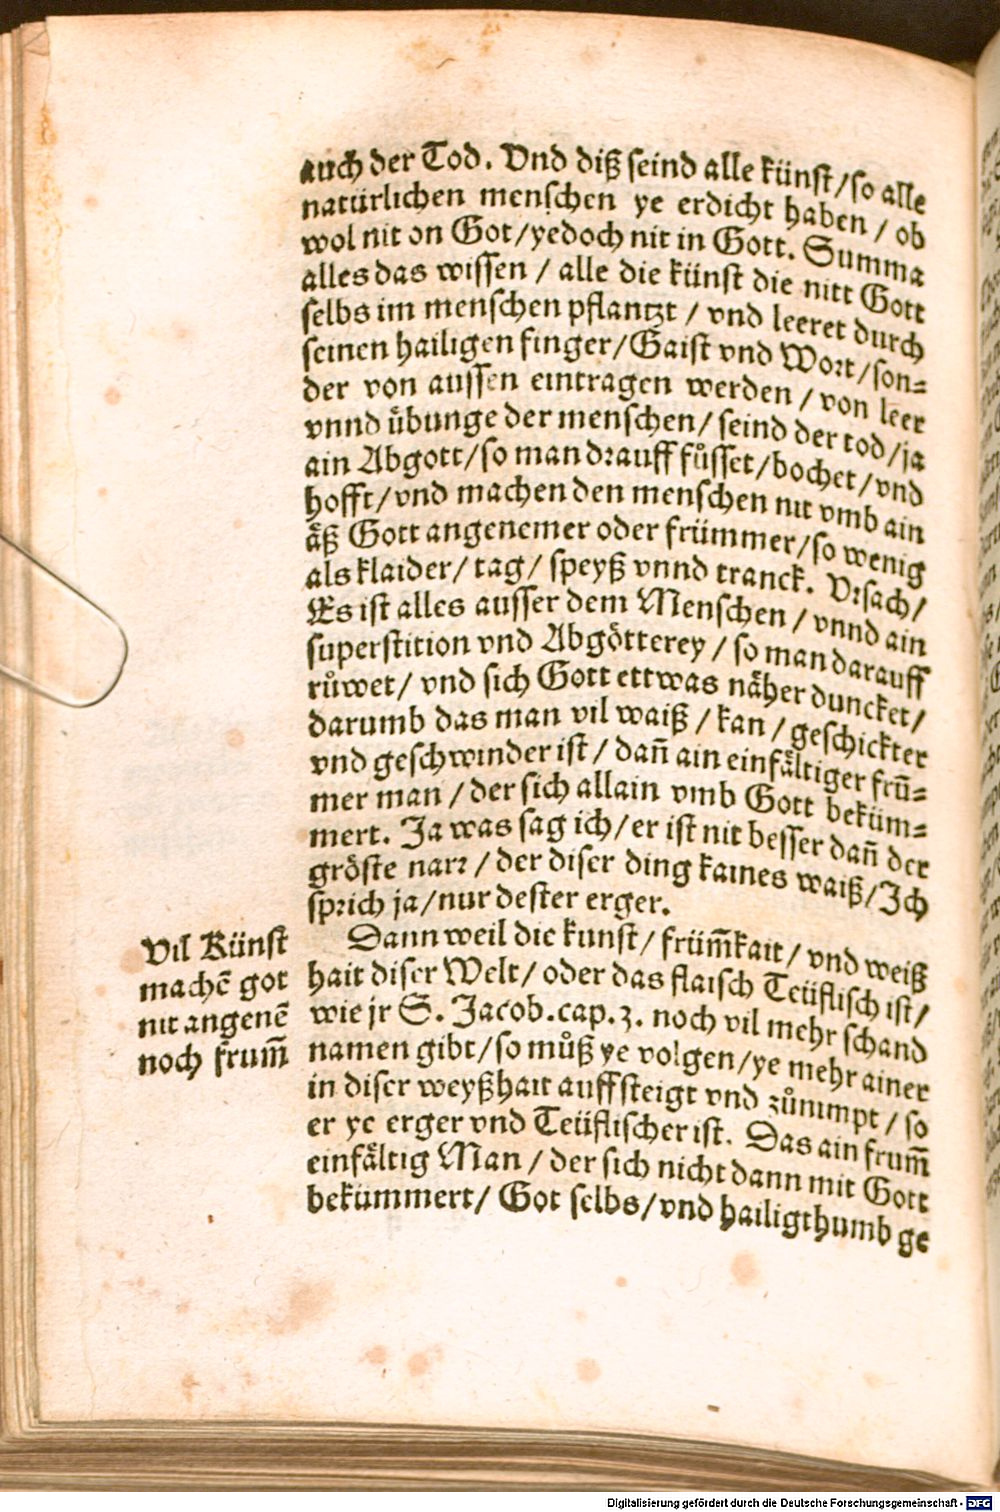 auch der Tod. Vnd diß seind alle künst / so alle
natürlichen menschen ye erdicht haben / ob
wol nit on Got / yedoch nit in Gott. Summa
alles das wissen / alle die künst die nitt Gott
selbs im menschen pflantzt / vnd leeret durch
seinen hailigen finger / Gaist vnd Wort / son⸗
der von aussen eintragen werden / von leer
vnnd uͤbunge der menschen / seind der tod / ja
ain Abgott / so man drauff fuͦsset / bochet / vnd
hofft / vnd machen den menschen nit vmb ain
aͤß Gott angenemer oder frümmer / so wenig
als klaider / tag / speyß vnnd tranck. Vrsach /
Es ist alles ausser dem Menschen / vnnd ain
superstition vnd Abgoͤtterey / so man darauff
ruͦwet / vnd sich Gott ettwas naͤher duncket /
darumb das man vil waiß / kan / geschickter
vnd geschwinder ist / dañ ain einfaͤltiger frǖ⸗
mer man / der sich allain vmb Gott beküm⸗
mert. Ja was sag ich / er ist nit besser dañ der
groͤste narr / der diser ding kaines waiß / Ich
sprich ja / nur dester erger.
Vil Künst
machē got
nit angenē
noch frum̄
Dann weil die kunst / früm̄kait / vnd weiß
hait diser Welt / oder das flaisch Teüflisch ist /
wie jr S. Jacob. cap. 3. noch vil mehr schand
namen gibt / so muͦß ye volgen / ye mehr ainer
in diser weyßhait auffsteigt vnd zuͦnimpt / so
er ye erger vnd Teüflischer ist. Das ain frum̄
einfaͤltig Man / der sich nicht dann mit Gott
bekümmert / Got selbs / vnd hailigthumb ge
Digitalisierung gefördert durch die Deutsche Forschungsgemeinschaft - DFG